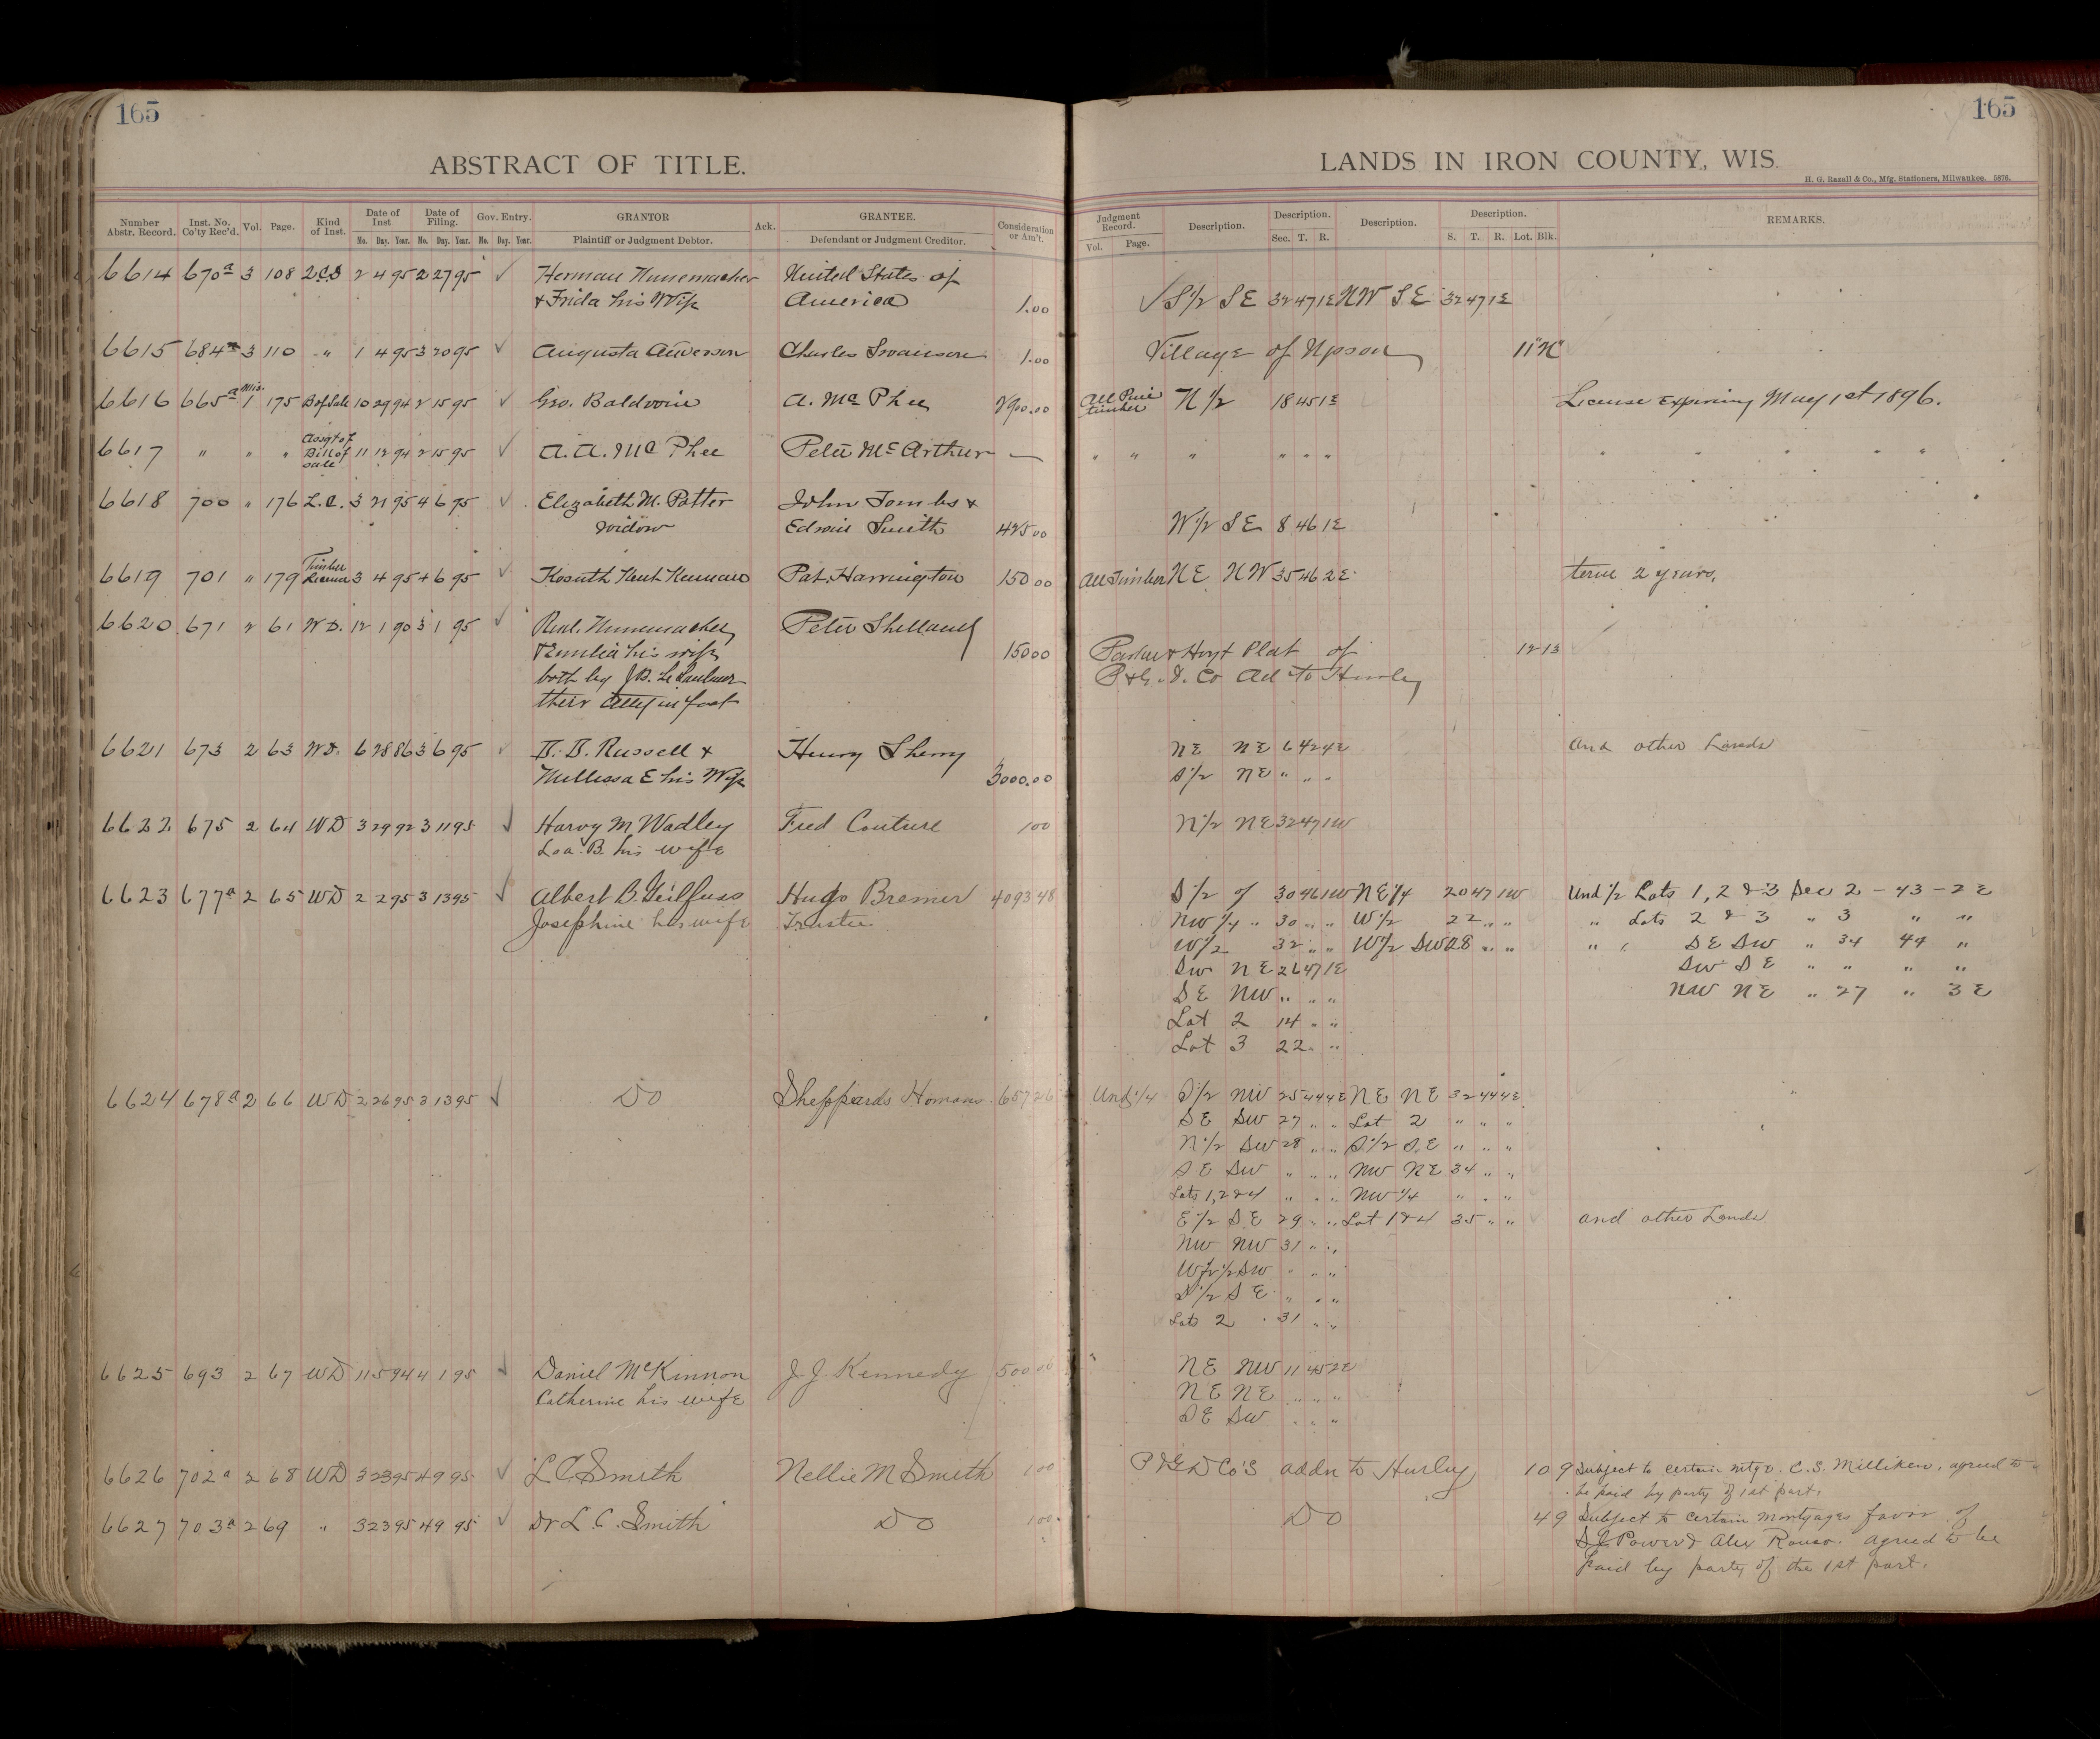 165
165
ABSTRACT OF TITLE.
LANDS IN IRON COUNTY, WIS.
H. G. Razall & Co., Mfg. Stationers, Milwaukee. 5876.
Number Abstr. Record. Inst. No. Co'ty Rec'd. Vol. Page. Kind of Inst. Date of Inst Date of Filing. Gov. Entry. GRANTOR Ack. GRANTEE. Consideration or Am't. Judgment Record. Description. Description. Description. Description. REMARKS.
Mo. Day. Year. Mo. Day. Year. Mo. Day. Year. Plaintiff or Judgment Debtor. Defendant or Judgment Creditor. Vol. Page. Sec. T. R. S. T. R. Lot. Blk.
6614 670a 3 108 2CD 2 4 95 2 27 95 ✓ Herman Nunemacher United States of
& Frida his Wife America 1.00 ✓ S 1/2 SE 32 47 1E NW SE 32 47 1E
6615 684a 3 110 " 1 4 95 3 20 95 ✓ Augusta Anderson Charles Swanson 1.00 Village of Upson 11 "N"
6616 665a Mis. 1 175 B of Sale 10 29 94 2 15 95 ✓ Geo. Baldwin A. Mc Phee 2900.00 All Pine timber N 1/2 18 45 1E License Expiring May 1st 1896.
6617 " " " Assgt of Bill of sale 11 12 94 2 15 95 ✓ A. A. Mc Phee Peter McArthur — " " " " " " " " " " "
6618 700 " 176 L.C. 3 21 95 4 6 95 ✓ Elizabeth M. Potter John Tombs &
widow Edwin Smith 425 00 W 1/2 SE 8 46 1E
6619 701 " 179 Timber License 3 4 95 4 6 95 ✓ Kosuth Kent Kennan Pat. Harrington 150 00 All Timber NE NW 35 46 2E term 2 years,
6620 671 2 61 W D. 12 1 90 3 1 95 ✓ Nunemacher Peter
his wife 150 00 & Hoyt Plat of 12-13
both by J.B. Co Ad to Hurley
their Atty in fact
6621 673 2 63 W D. 6 28 86 3 6 95 ✓ Russell & Henry Sherry NE NE 6 42 4E And other Lands
Mellissa E his Wife 3000.00 S 1/2 NE " " "
6622 675 2 64 WD 3 29 92 3 11 95 ✓ Harvy M Wadley Fred Couture 100 N 1/2 NE 32 47 1W
Loa. B. his wife
6623 677a 2 65 WD 2 2 95 3 13 95 ✓ Albert B. Geilfuss Hugo Bremer 4093 48 S 1/2 of 30 46 1W NE 1/4 20 47 1W Und 1/2 Lots 1, 2 & 3 Sec 2 - 43 - 2 E
Josephine his wife Trustee NW 1/4 " 30 " " W 1/2 22 " " " Lots 2 & 3 " 3 " "
W 1/2 32 " " W 1/2 SW 28 " " " " SE SW " 34 44 "
SW NE 26 47 1E SW SE " " " "
SE NW " " " NW NE " 27 " 3 E
Lot 2 14 " "
Lot 3 22 " "
6624 678a 2 66 WD 2 26 95 3 13 95 ✓ Do Sheppards Homans 657 26 Und 1/4 S 1/2 NW 25 44 4E NE NE 32 44 4E
SE SW 27 " " Lot 2 " " "
N 1/2 SW 28 " " S 1/2 SE " " "
SE SW " " " NW NE 34 " "
Lots 1, 2 & 4 " " " NW 1/4 " " "
E 1/2 SE 29 " " Lot 1 & 4 35 " " and other Lands
NW NW 31 " "
W 1/2 SW " " "
S 1/2 SE " " "
Lots 2 31 " "
6625 693 2 67 WD 1 15 94 4 1 95 ✓ Daniel McKinnon J. J. Kennedy 500 00 NE NW 11 45 2E
Catherine his wife NE NE " " "
SE SW " " "
6626 702a 2 68 WD 3 23 95 4 9 95 ✓ L C Smith Nellie M Smith 1 00 P & G D Co's addn to Hurley 10 9 Subject to certain mtgs. C. S. Milliken, agreed to
be paid by party of 1st part.
6627 703a 2 69 " 3 23 95 4 9 95 ✓ Dr L. C. Smith Do 1 00 Do 4 9 Subject to certain mortgages favor of
Power & Alex agreed to be
paid by party of the 1st part.